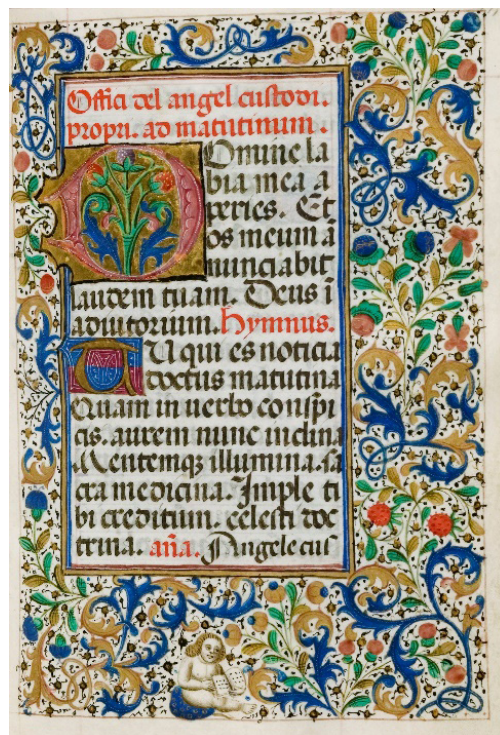 Offici del angel custodi.
propri. ad matutinum.
Domine la
bia mea a
peries. Et
os meum a
nunciabit
laudem tuam. Deus i
adiutorium. Hymnus.
TU qui es noticia
doctus matutina
Quam in uerbo conspi
cis. aurem nunc inclina
Mentemqꝫ illumina. sa
cra medicina. Imple ti
bi creditum. celesti doc
trina. aña. Angele cus